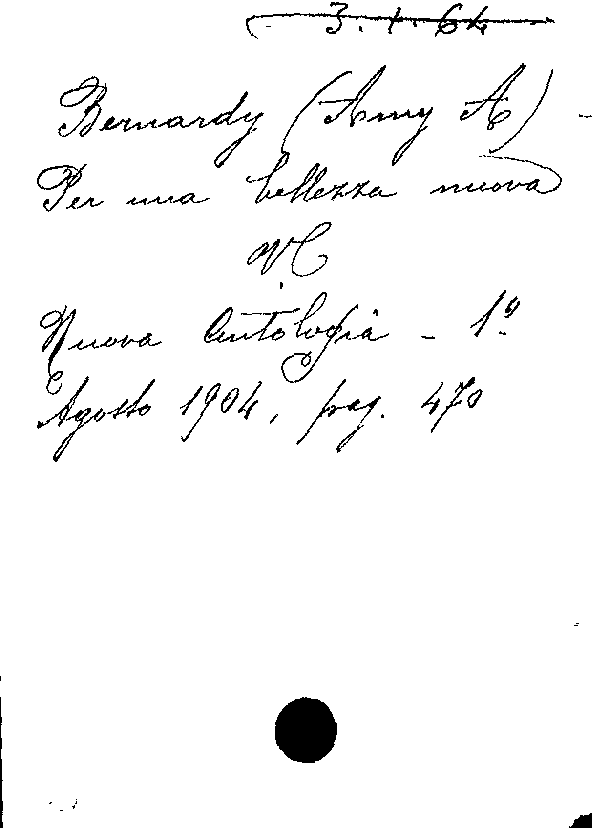 3. 1. 64
Bernardy (Amy A) -
Per una bellezza nuova
VC
Nuova Antologia - 1º
Agosto 1904, pag. 470